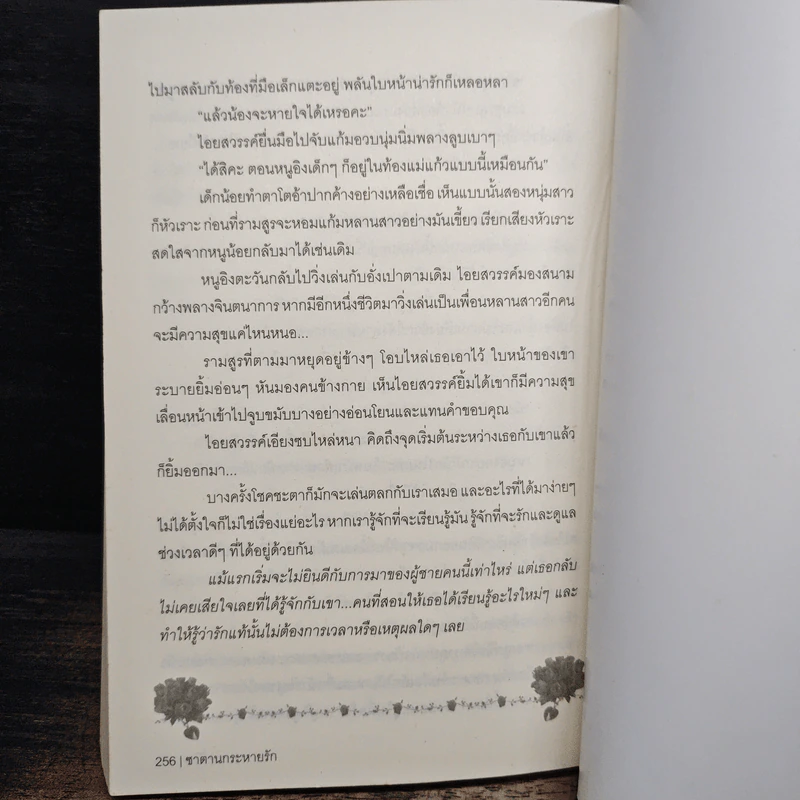 ไปมาสลับกับท้องที่มือเล็กแตะอยู่ พลันใบหน้าน่ารักก็เหลอหลา
“แล้วน้องจะหายใจได้เหรอคะ”
ไอยสวรรค์ยื่นมือไปจับแก้มอวบนุ่มนิ่มพลางลูบเบาๆ
“ได้สิคะ ตอนหนูอิงเด็กๆ ก็อยู่ในท้องแม่แก้วแบบนี้เหมือนกัน”
เด็กน้อยทำตาโตอ้าปากค้างอย่างเหลือเชื่อ เห็นแบบนั้นสองหนุ่มสาว
ก็หัวเราะ ก่อนที่รามสูรจะหอมแก้มหลานสาวอย่างมันเขี้ยว เรียกเสียงหัวเราะ
สดใสจากหนูน้อยกลับมาได้เช่นเดิม
หนูอิงตะวันกลับไปวิ่งเล่นกับอั่งเปาตามเดิม ไอยสวรรค์มองสนาม
กว้างพลางจินตนาการ หากมีอีกหนึ่งชีวิตมาวิ่งเล่นเป็นเพื่อนหลานสาวอีกคน
จะมีความสุขแค่ไหนหนอ...
รามสูรที่ตามมาหยุดอยู่ข้างๆ โอบไหล่เธอเอาไว้ ใบหน้าของเขา
ระบายยิ้มอ่อนๆ หันมองคนข้างกาย เห็นไอยสวรรค์ยิ้มได้เขาก็มีความสุข
เลื่อนหน้าเข้าไปจูบขมับบางอย่างอ่อนโยนและแทนคำขอบคุณ
ไอยสวรรค์เอียงซบไหล่หนา คิดถึงจุดเริ่มต้นระหว่างเธอกับเขาแล้ว
ก็ยิ้มออกมา...
บางครั้งโชคชะตาก็มักจะเล่นตลกกับเราเสมอ และอะไรที่ได้มาง่ายๆ
ไม่ได้ตั้งใจก็ไม่ใช่เรื่องแย่อะไร หากเรารู้จักที่จะเรียนรู้มัน รู้จักที่จะรักและดูแล
ช่วงเวลาดีๆ ที่ได้อยู่ด้วยกัน
แม้แรกเริ่มจะไม่ยินดีกับการมาของผู้ชายคนนี้เท่าไหร่ แต่เธอกลับ
ไม่เคยเสียใจเลยที่ได้รู้จักกับเขา...คนที่สอนให้เธอได้เรียนรู้อะไรใหม่ๆ และ
ทำให้รู้ว่ารักแท้นั้นไม่ต้องการเวลาหรือเหตุผลใดๆ เลย
256 | ซาตานกระหายรัก